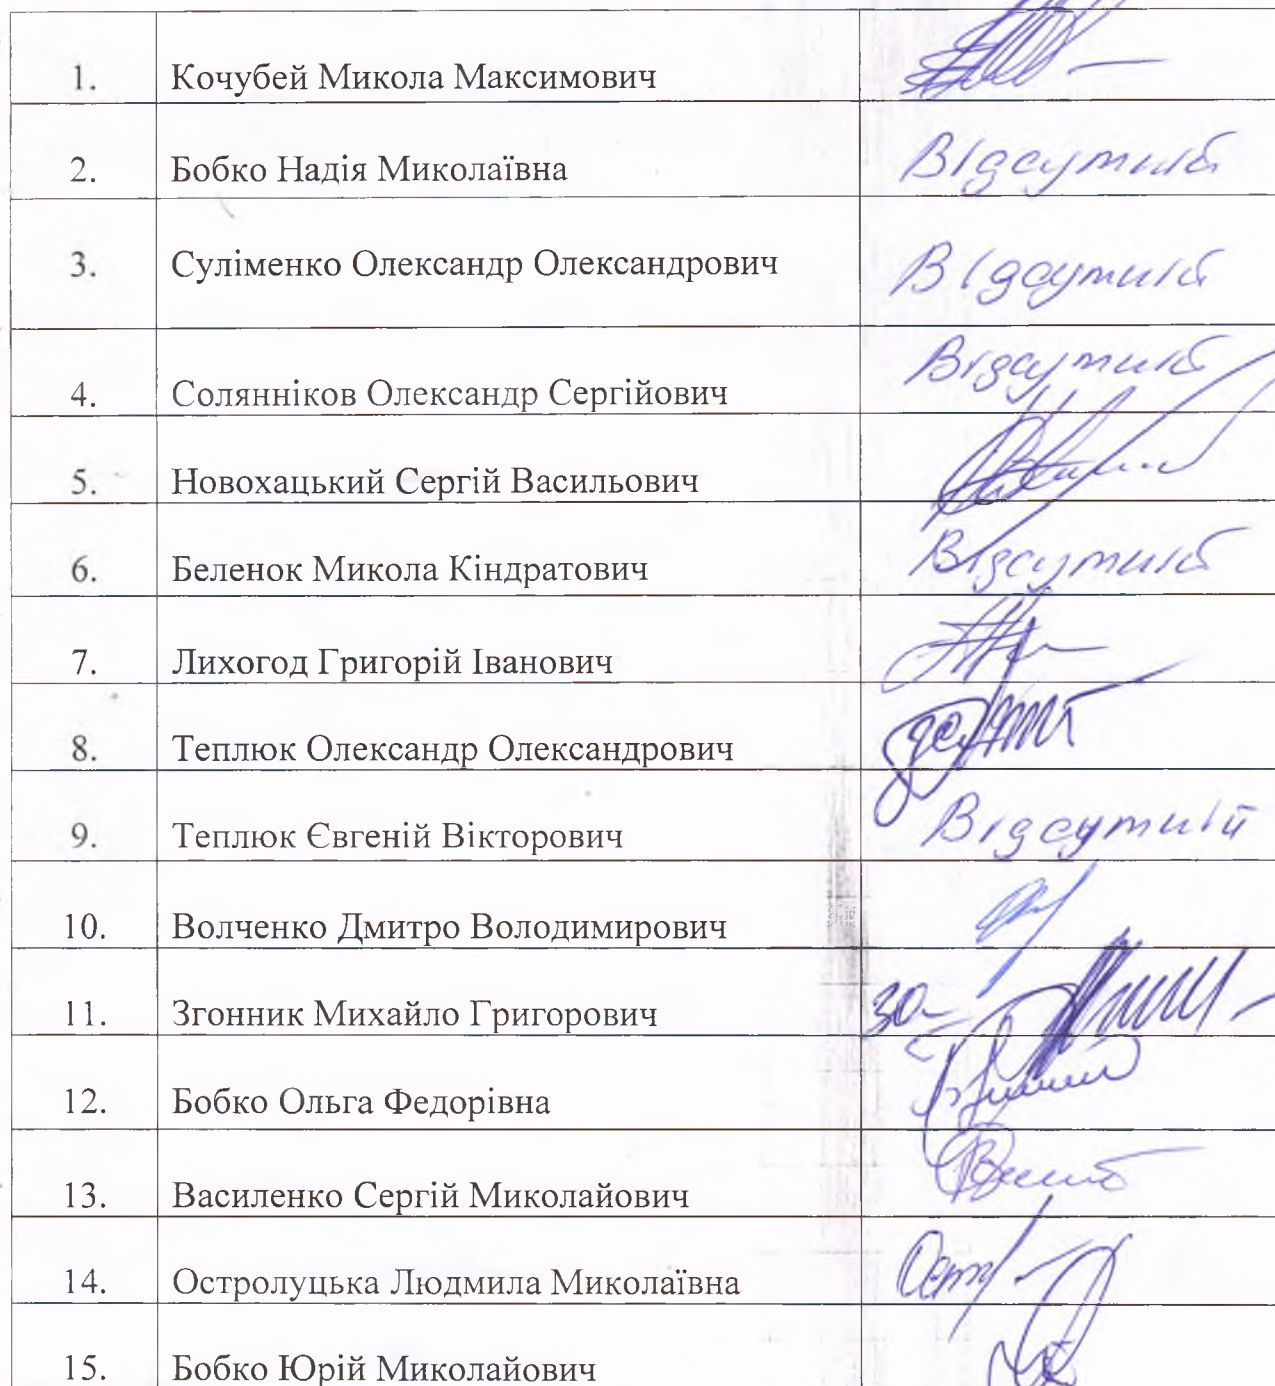 1. Кочубей Микола Максимович
2. Бобко Надія Миколаївна Відсутній
3. Суліменко Олександр Олександрович Відсутній
4. Солянніков Олександр Сергійович Відсутній
5. Новохацький Сергій Васильович
6. Беленок Микола Кіндратович Відсутній
7. Лихогод Григорій Іванович
8. Теплюк Олександр Олександрович
9. Теплюк Євгеній Вікторович Відсутній
10. Волченко Дмитро Володимирович
11. Згонник Михайло Григорович за-
12. Бобко Ольга Федорівна
13. Василенко Сергій Миколайович
14. Остролуцька Людмила Миколаївна
15. Бобко Юрій Миколайович